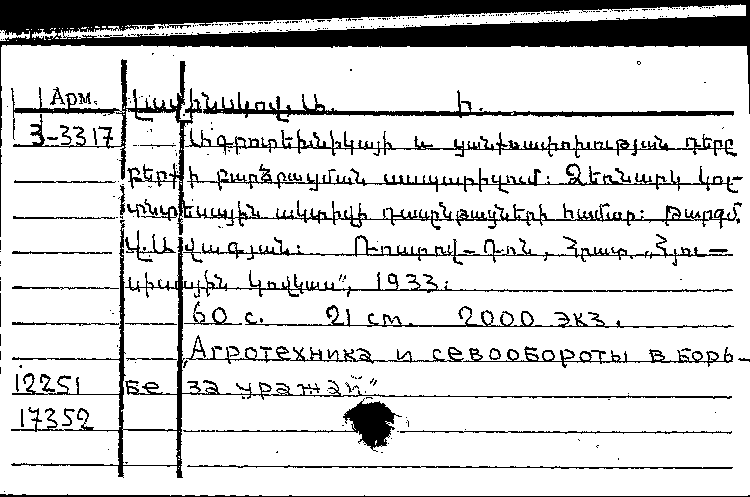 Арм. Լավինսկով, Ա. Ի.
3-3317 Ագրոտեխնիկայի և ցանքափոխության դերը
բերքի բարձրացման ասպարիզում: Ձեռնարկ կոլ-
տնտեսային ակտիվի դասընթացների համար: Թարգմ.
Վ. Ավագյան: Ռոստով-Դոն, Հրատ. „Հյու-
սիսային կովկաս", 1933:
60 с. 21 см. 2000 экз.
„Агротехника и севообороты в борь-
12251 бе за уражай"
17352